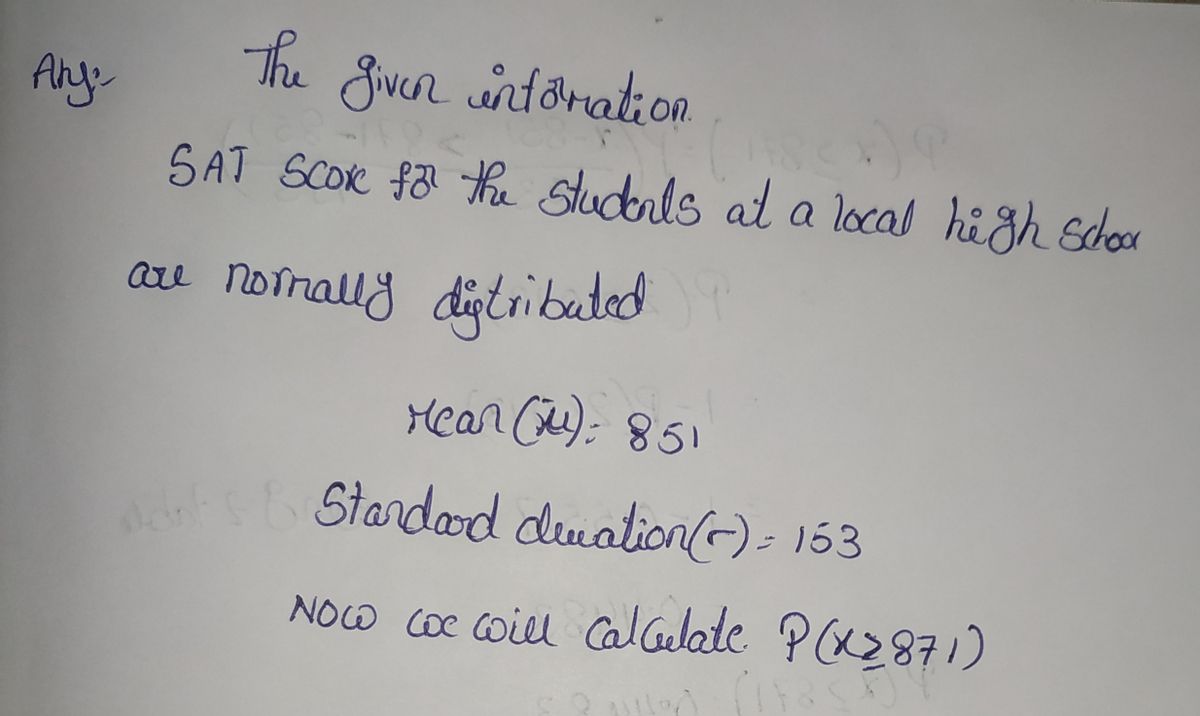 Ans:-
The given information.
SAT Score for the students at a local high school
are normally distributed
Mean (μ) = 851
Standard deviation (σ) = 153
Now we will Calculate P(x≥871)